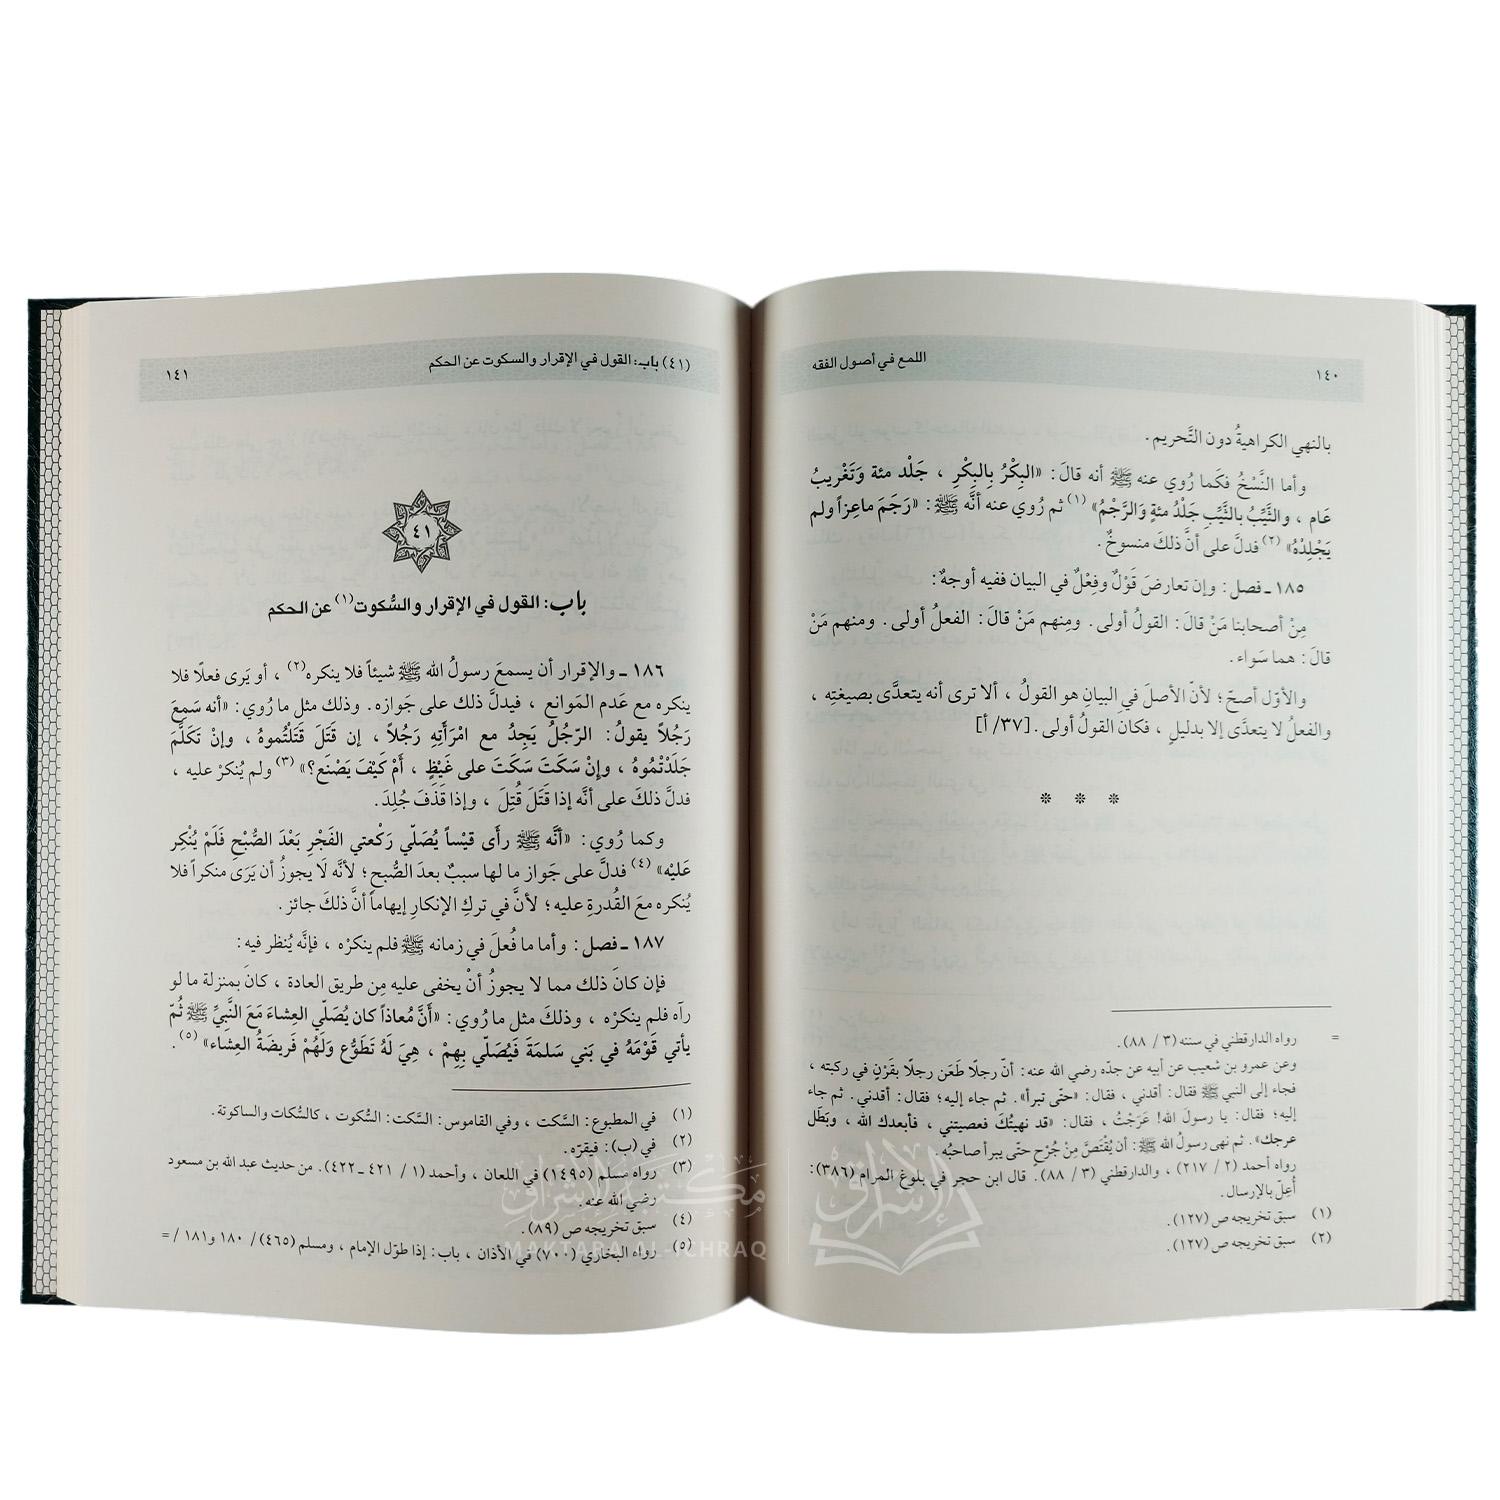 ١٤٠
اللمع في أصول الفقه
بالنهي الكراهيةُ دون التَّحريم.
وأما النَّسْخُ فكَما رُوي عنه ﷺ أنه قالَ: «البِكْرُ بِالبِكْرِ ، جَلْد مئة وَتَغْريبُ
عَام ، والثَّيِّبُ بالثَّيِّبِ جَلْدُ مئةٍ وَالرَّجْمُ»(١) ثم رُوي عنه أنَّه ﷺ: «رَجَمَ ماعِزاً ولم
يَجْلِدْهُ»(٢) فدلَّ على أنَّ ذلكَ منسوخٌ.
١٨٥ ـ فصل: وإن تعارضَ قَوْلٌ وفِعْلٌ في البيان ففيه أوجهٌ:
مِنْ أصحابنا مَنْ قالَ: القولُ أولى. ومِنهم مَنْ قالَ: الفعلُ أولى. ومنهم مَنْ
قالَ: هما سَواء.
والأوّل أصحّ؛ لأنّ الأصلَ في البيانِ هو القولُ ، ألا ترى أنه يتعدَّى بصيغتِه ،
والفعلُ لا يتعدَّى إلا بدليلٍ ، فكان القولُ أولى. [٣٧/ أ]
* * *
= رواه الدارقطني في سننه (٣ / ٨٨).
وعن عمرو بن شعيب عن أبيه عن جدّه رضي الله عنه: أنّ رجلًا طَعَن رجلًا بقَرْنٍ في ركبته ،
فجاء إلى النبي ﷺ فقال: أقدني ، فقال: «حتّى تبرأ». ثم جاء إليه؛ فقال: أقدني. ثم جاء
إليه؛ فقال: يا رسولَ الله! عَرَجْتُ ، فقال: «قد نهيتُكَ فعصيتني ، فأبعدك الله ، وبَطَل
عرجك». ثم نهى رسولُ الله ﷺ: أن يُقْتَصَّ مِنْ جُرْحٍ حتّى يبرأ صاحبُه.
رواه أحمد (٢ / ٢١٧) ، والدارقطني (٣ / ٨٨). قال ابن حجر في بلوغ المرام (٣٨٦):
أُعِلّ بالإرسال.
(١) سبق تخريجه ص (١٢٧).
(٢) سبق تخريجه ص (١٢٧).
(٤١) باب: القول في الإقرار والسكوت عن الحكم
١٤١
٤١
باب: القول في الإقرار والسُّكوت(١) عن الحكم
١٨٦ ـ والإقرار أن يسمعَ رسولُ الله ﷺ شيئاً فلا ينكره(٢) ، أو يَرى فعلًا فلا
ينكره مع عَدم المَوانع ، فيدلَّ ذلك على جَوازه. وذلك مثل ما رُوي: «أنه سَمِعَ
رَجُلاً يقولُ: الرَّجُلُ يَجِدُ مع امْرَأَتِهِ رَجُلاً ، إن قَتَلَ قَتَلْتُموهُ ، وإنْ تَكلَّمَ
جَلَدْتُموُهُ ، وإنْ سَكَتَ سَكَتَ على غَيْظٍ ، أَمْ كَيْفَ يَصْنَع؟»(٣) ولم يُنكرْ عليه ،
فدلَّ ذلكَ على أنَّه إذا قتَلَ قُتِلَ ، وإذا قذَفَ جُلِدَ.
وكما رُوي: «أنَّه ﷺ رأَى قيْساً يُصَلّي رَكْعتي الفَجْرِ بَعْدَ الصُّبْحِ فَلَمْ يُنْكِر
عَليْه»(٤) فدلَّ على جَواز ما لها سببٌ بعدَ الصُّبح؛ لأنَّه لَا يجوزُ أن يَرَى منكراً فلا
يُنكره معَ القُدرةِ عليه؛ لأنَّ في تركِ الإنكارِ إيهاماً أنَّ ذلكَ جائز.
١٨٧ ـ فصل: وأما ما فُعلَ في زمانه ﷺ فلم ينكرْه ، فإنَّه يُنظر فيه:
فإن كانَ ذلك مما لا يجوزُ أنْ يخفى عليه مِن طريق العادة ، كانَ بمنزلة ما لو
رآه فلم ينكرْه ، وذلكَ مثل ما رُوي: «أنَّ مُعاذاً كان يُصَلّي العِشاءَ مَعَ النَّبيِّ ﷺ ثُمّ
يأتي قَوْمَهُ في بَني سَلمَةَ فَيُصَلّي بِهِمْ ، هِيَ لَهُ تَطَوُّع وَلَهُمْ فَريضَةُ العِشاء»(٥).
(١) في المطبوع: السَّكت ، وفي القاموس: السَّكت: السُّكوت ، كالسُّكات والساكوتة.
(٢) في (ب): فيقرّه.
(٣) رواه مسلم (١٤٩٥) في اللعان ، وأحمد (١ / ٤٢١ ـ ٤٢٢). من حديث عبد الله بن مسعود
رضي الله عنه.
(٤) سبق تخريجه ص (٨٩).
(٥) رواه البخاري (٧٠٠) في الأذان ، باب: إذا طوّل الإمام ، ومسلم (٤٦٥)/ ١٨٠ و١٨١ / =
مكتبة الإشراق
MAKTABA AL-ICHRAQ
الإشراق